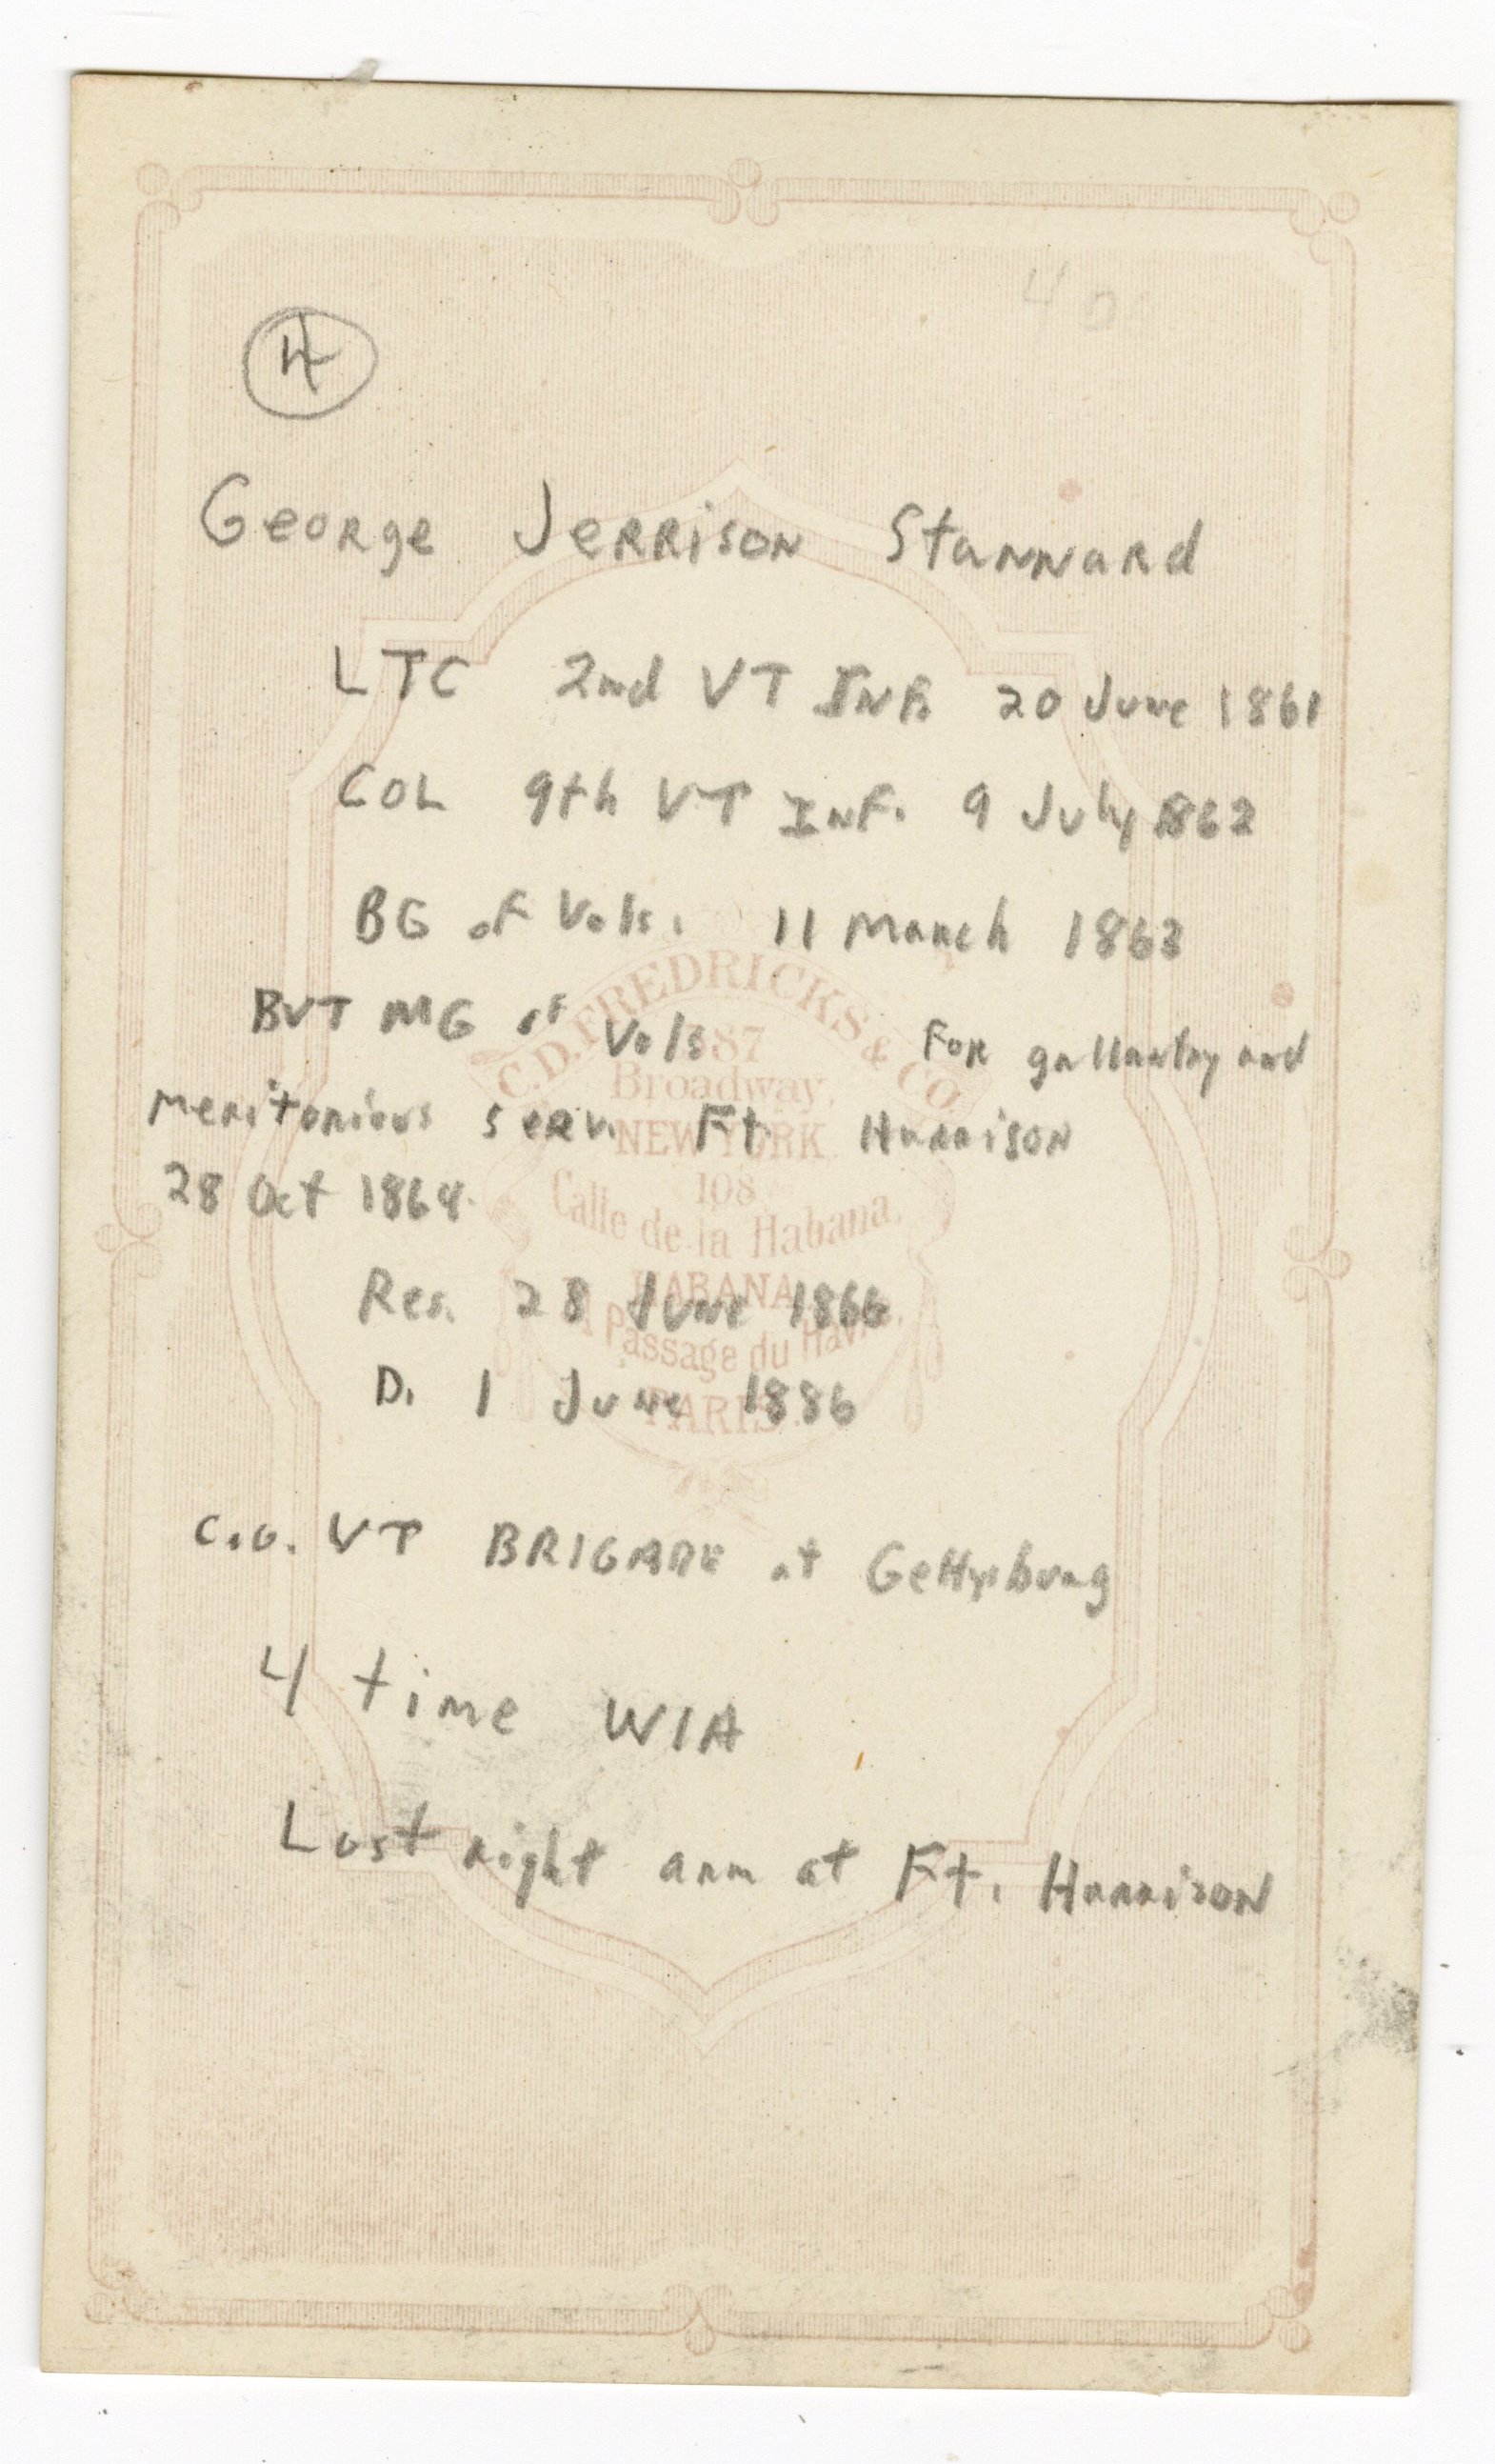 40
4
George Jerrison Stannard
LTC 2nd VT Inf. 20 June 1861
COL 9th VT Inf. 9 July 1862
BG of Vols. 11 March 1863
BVT MG of Vols For gallantry and
meritorious serv. Ft. Harrison
28 Oct 1864.
Res. 28 June 1866
D. 1 June 1886
C.O. VT BRIGADE at Gettysburg
4 time WIA
Lost right arm at Ft. Harrison
C.D. FREDRICKS & CO.
587
Broadway,
NEW YORK
108
Calle de la Habana,
HABANA
Passage du Havre,
PARIS